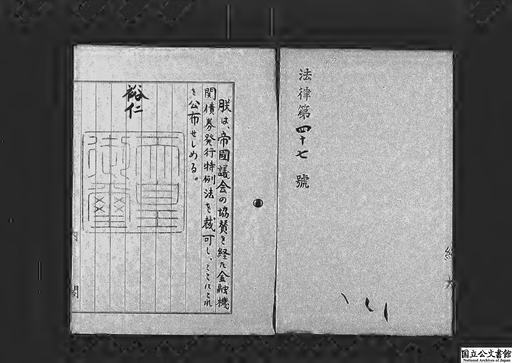 法律第四十七號
朕は、帝國議会の協賛を経た金融機
関債券発行特例法を裁可し、ここにこれ
を公布せしめる。
裕仁
天皇
御璽
内閣
国立公文書館
National Archives of Japan